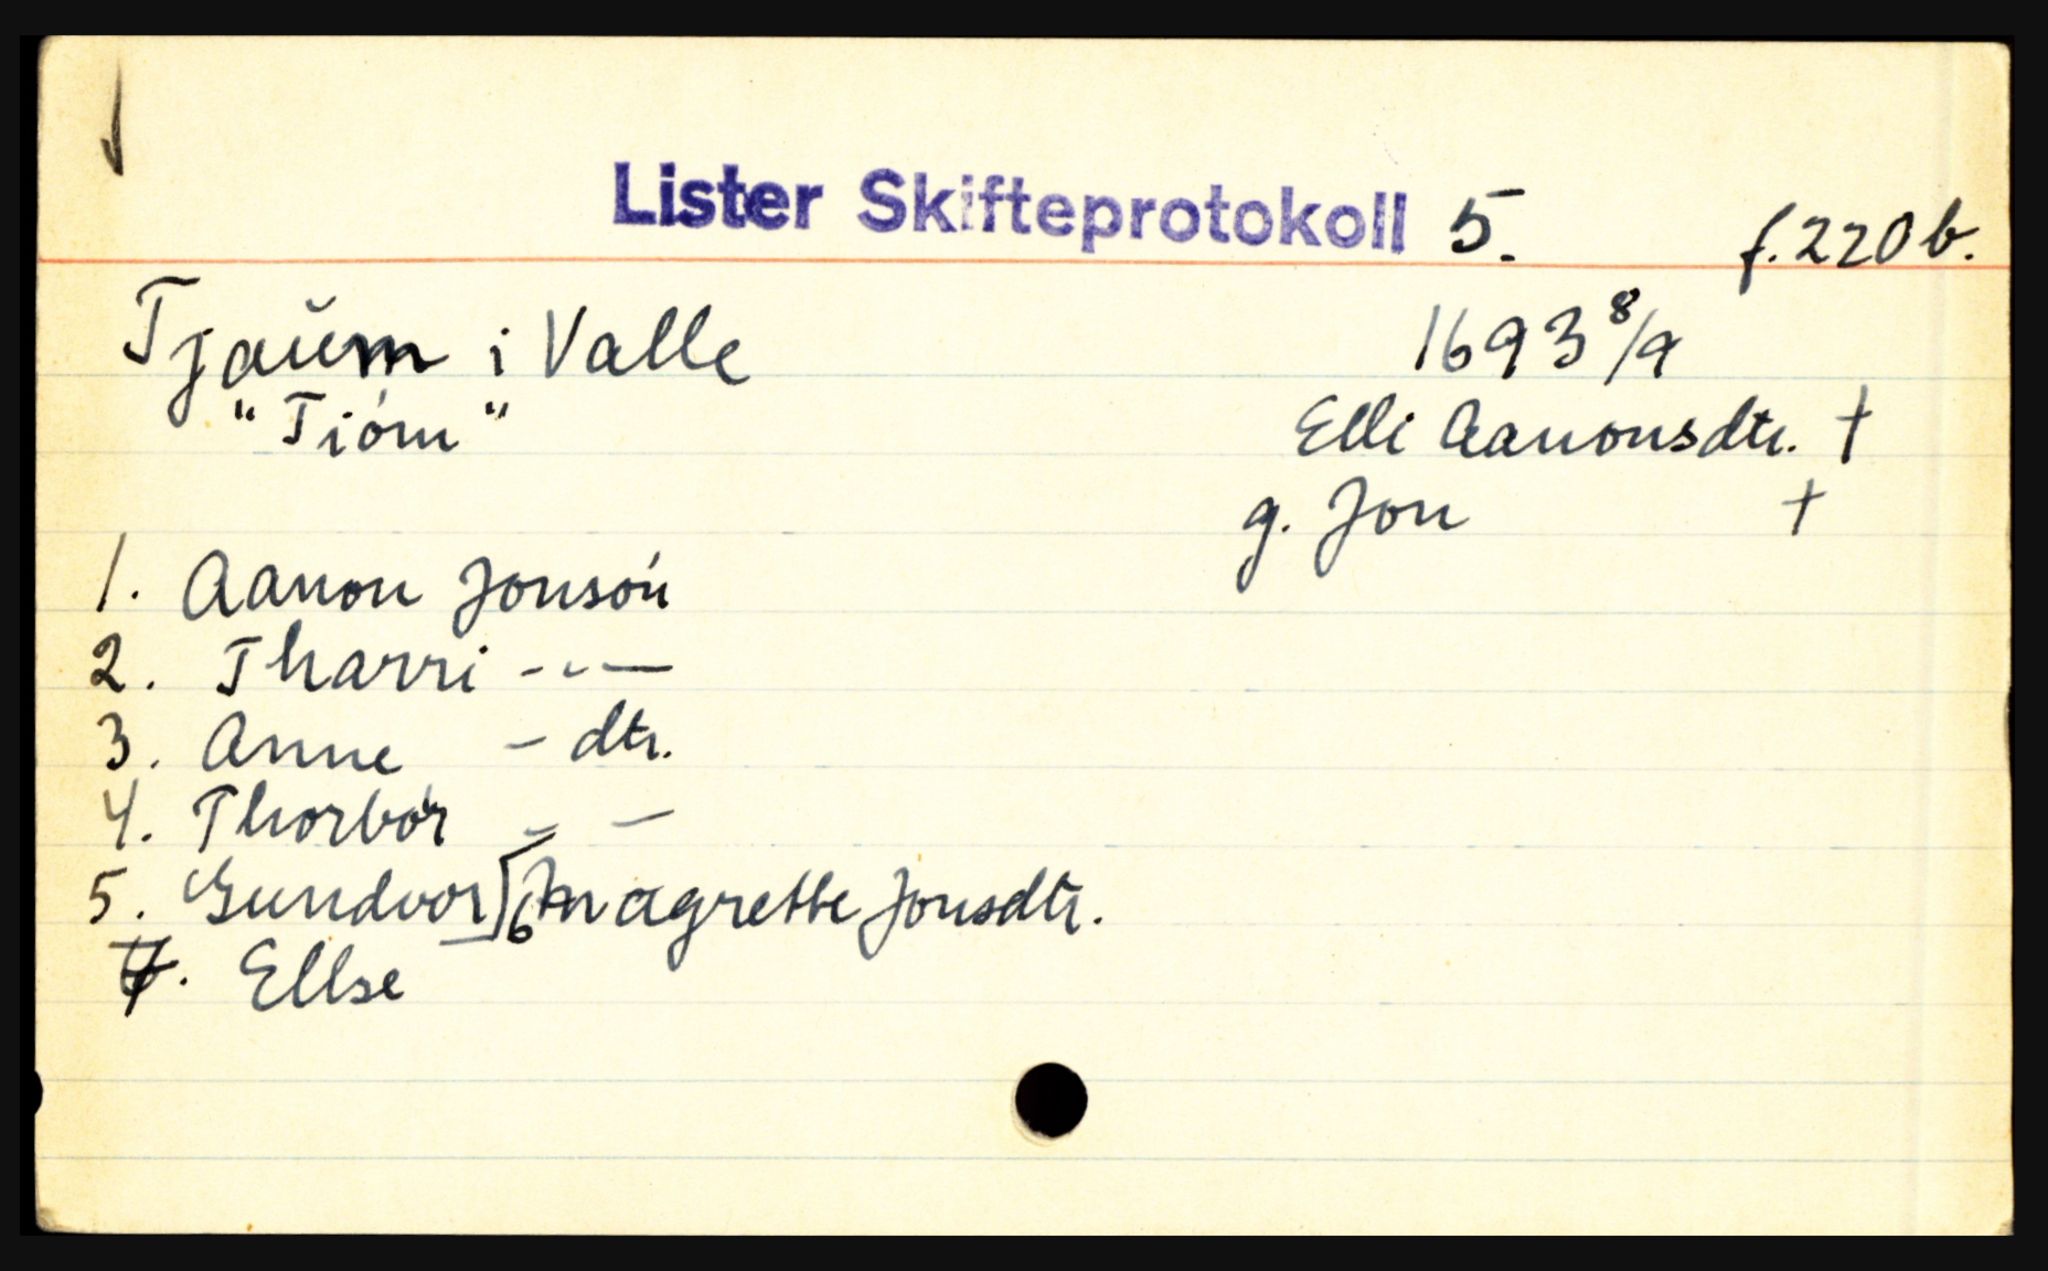 Lister Skifteprotokoll 5. f. 220 b.
Tjaŭm i Valle 1693 8/9
"Tióm" Elli Aanonsdtr. †
g. Jon †
1. Aanon Jonsón
2. Tharri - - —
3. Anne - dtr.
4. Thorbór - —
5. Gundvor 6 Magrette Jonsdtr.
7. Ellse